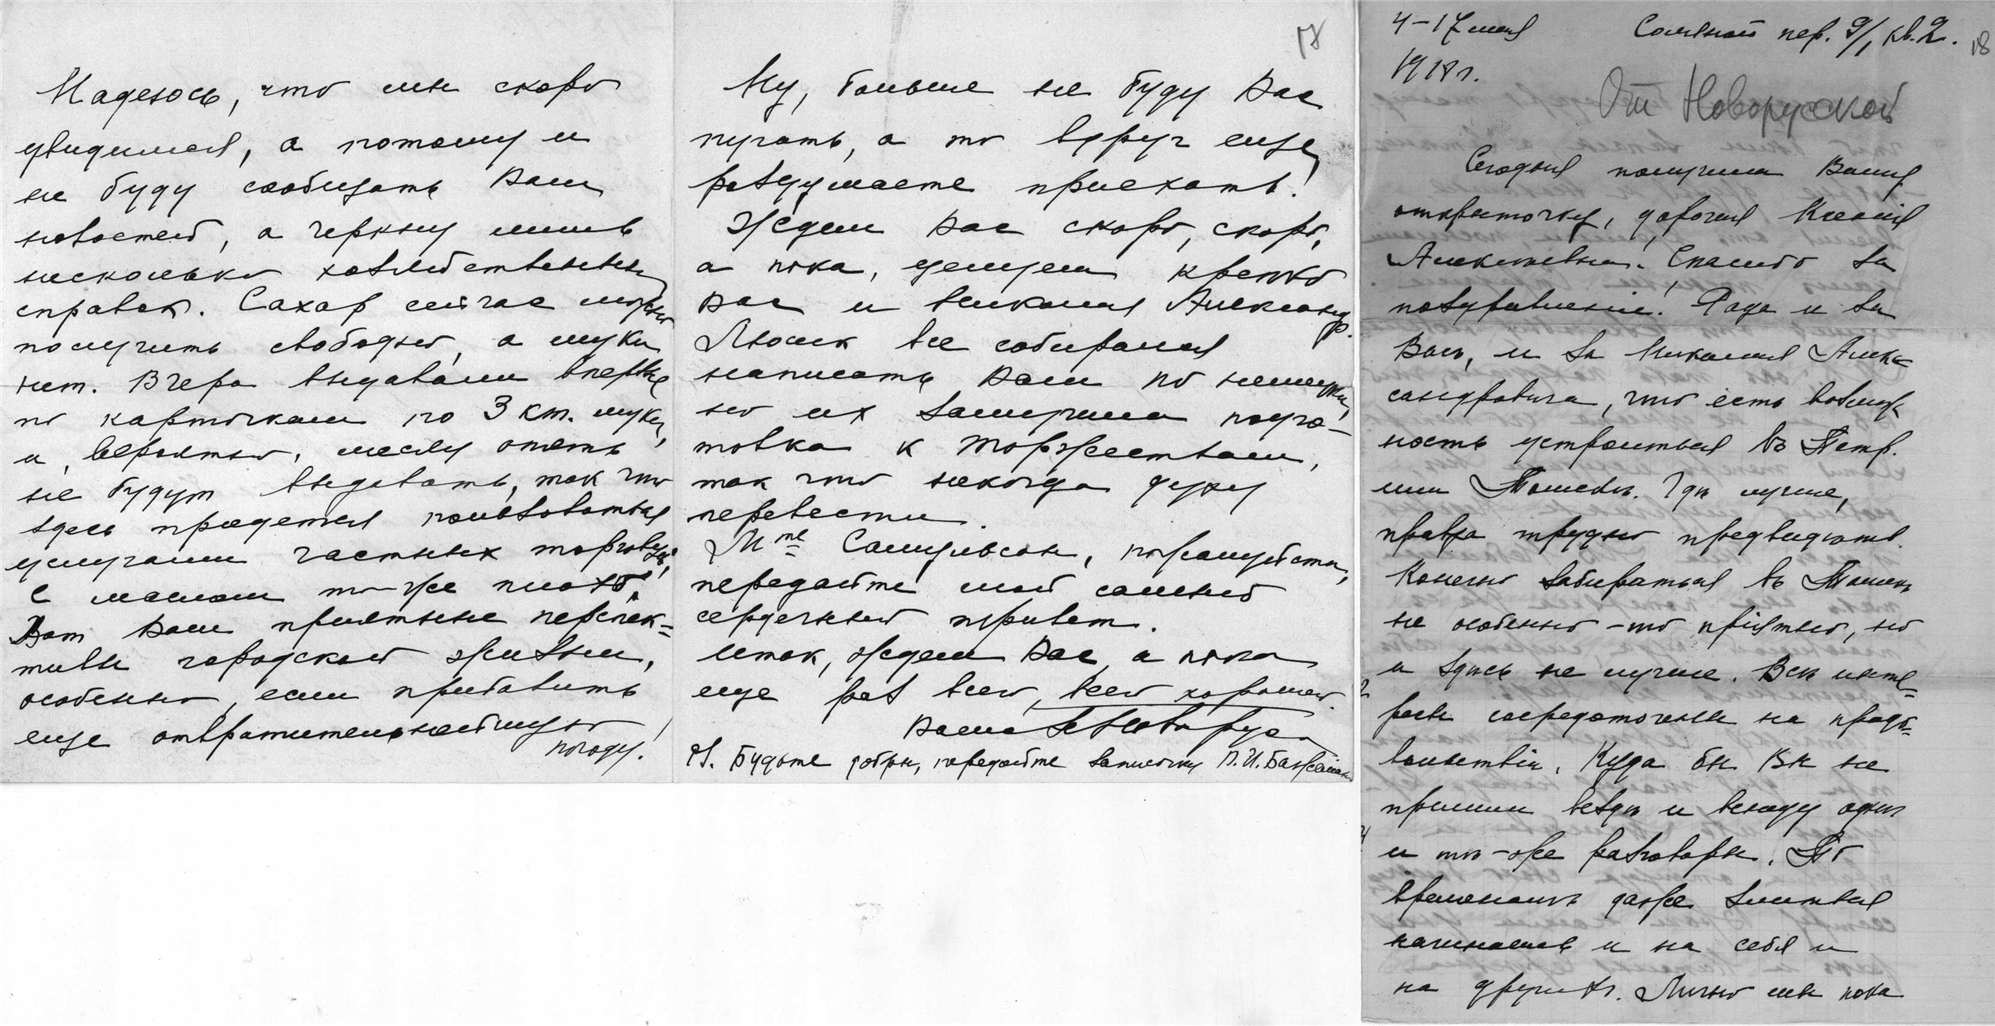 Надеюсь, что мы скоро
увидимся, а потому и
не буду сообщать Вам
новостей, а черкну лишь
несколько хозяйственных
справок. Сахар сейчас можно
получить свободно, а муки
нет. Вчера выдавали впервые
по карточкам по 3 кт. муки,
и, вероятно, месяц опять
не будут выдавать, так что
здесь придется пользоваться
услугами частных торговцев.
С маслом то-же плохо.
Вот Вам приятные перспек=
тивы городской жизни,
особенно, если прибавить
еще отвратительнейшую
погоду!
17
Ну, больше не буду Вас
пугать, а то вдруг еще
раздумаете приехать!
Ждем Вас скоро, скоро,
а пока, целуем крепко
Вас и Николая Александр.
Люсик все собирался
написать Вам по немецки,
но их замучила подго-
товка к торжествам,
так что некогда духу
перевести.
Mme Самуельсон, пожалуйста,
передайте мой самый
сердечный привет.
Итак, ждем Вас, а пока
еще раз всего, всего хорошего.
Ваша
PS. Будьте добры, передайте записочку
4–17 мая Соляной пер. 9/1, кв. 2. 18
1918 г.
От Новорусской
Сегодня получила Вашу
открыточку, дорогая Ксения
Алексеевна. Спасибо за
поздравление! Рада и за
Вас, и за Николая Алекс
сандровича, что есть возмож
ность устроиться въ Петр.
или Томскѣ. Гдѣ лучше,
правда трудно предвидѣть.
Конечно забираться въ Томскъ
не особенно-то пріятно, но
и здѣсь не лучше. Всѣ инте=
ресы сосредоточены на продо=
вольствіи. Куда бы Вы не
пришли вездѣ и всюду одни
и тѣ-же разговоры. По
временамъ даже злиться
начинаешь и на себя и
на другихъ. Лично мы пока